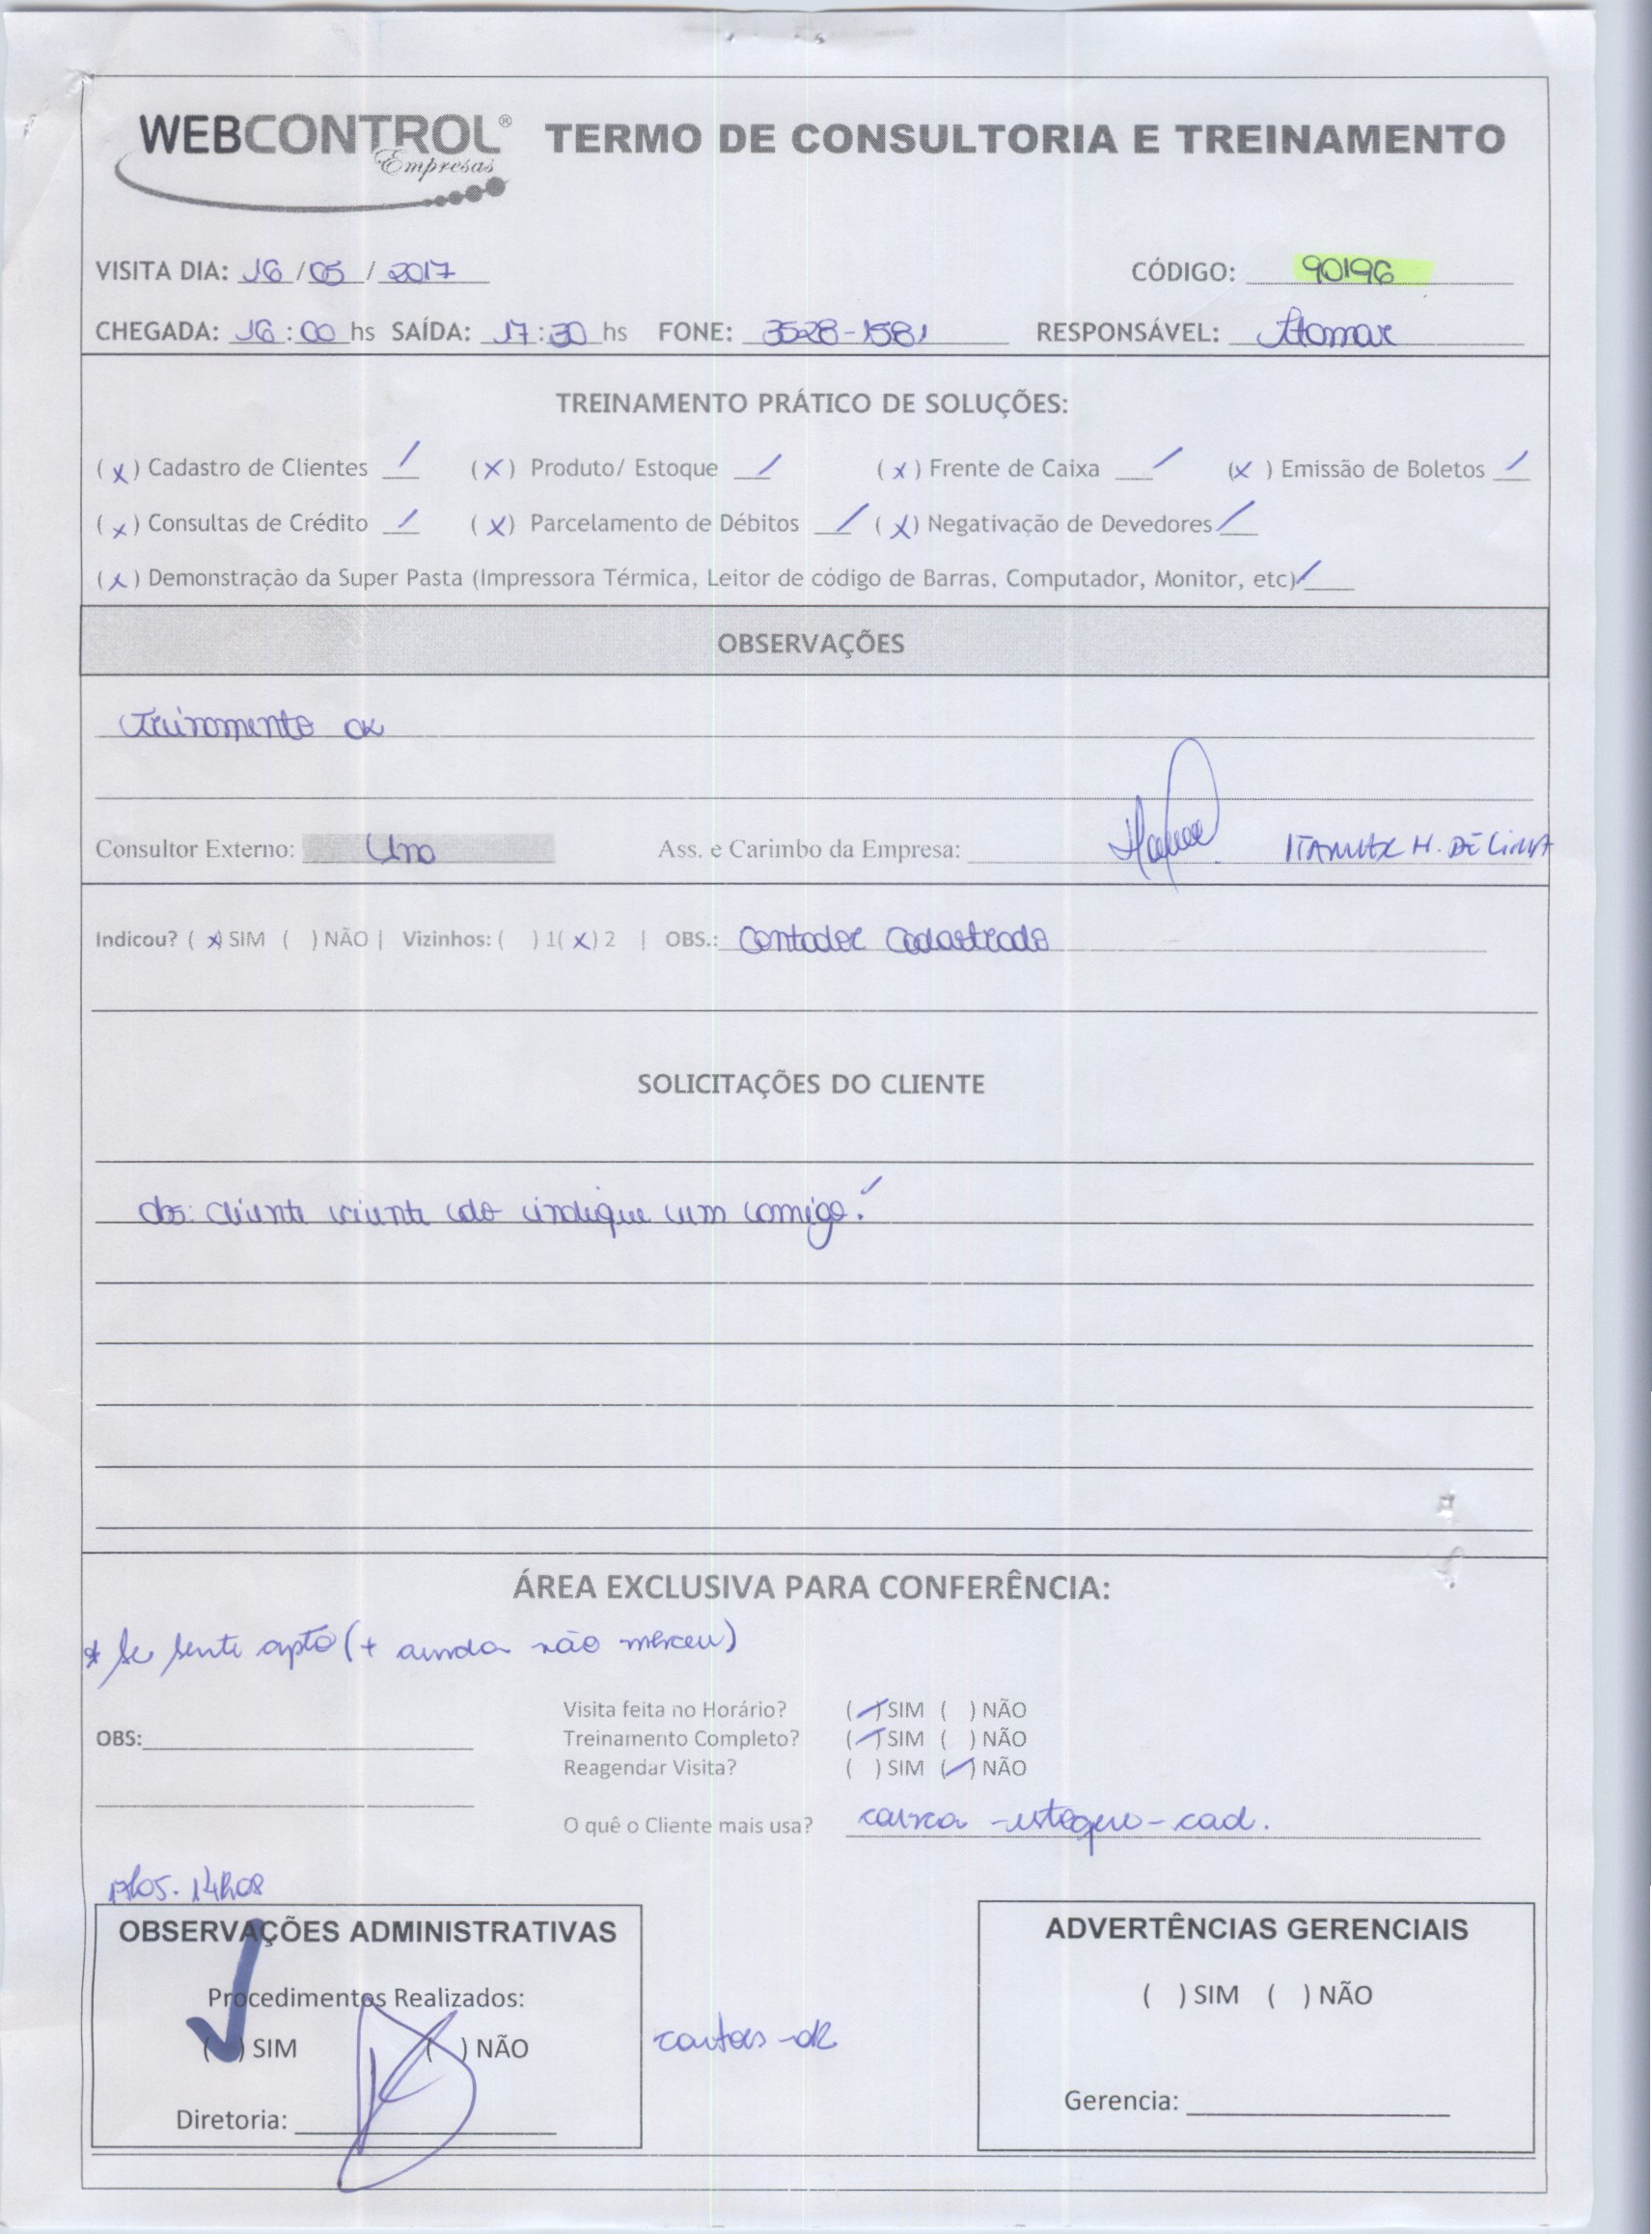 WEBCONTROL® Empresas TERMO DE CONSULTORIA E TREINAMENTO
VISITA DIA: 16 / 05 / 2017 CÓDIGO: 90196
CHEGADA: 16:00 hs SAÍDA: 17:30 hs FONE: 3528-1581 RESPONSÁVEL:
TREINAMENTO PRÁTICO DE SOLUÇÕES:
(x) Cadastro de Clientes / (x) Produto/ Estoque / (x) Frente de Caixa / (x ) Emissão de Boletos /
(x) Consultas de Crédito / (x) Parcelamento de Débitos / (x) Negativação de Devedores /
(x) Demonstração da Super Pasta (Impressora Térmica, Leitor de código de Barras, Computador, Monitor, etc) /
OBSERVAÇÕES
Treinamento ok
Consultor Externo: Ass. e Carimbo da Empresa: ITAMAR H. DE LIMA
Indicou? (x) SIM ( ) NÃO | Vizinhos: ( ) 1(x) 2 | OBS.: Contador Cadastrado
SOLICITAÇÕES DO CLIENTE
obs: cliente ciente do indique um comigo.
ÁREA EXCLUSIVA PARA CONFERÊNCIA:
* Se sente apto (+ ainda não mexeu)
Visita feita no Horário? (/) SIM ( ) NÃO
OBS: Treinamento Completo? (/) SIM ( ) NÃO
Reagendar Visita? ( ) SIM (/) NÃO
O quê o Cliente mais usa? caixa - estoque - cad.
17/05. 14h08
OBSERVAÇÕES ADMINISTRATIVAS
Procedimentos Realizados:
(✓) SIM ( ) NÃO
Diretoria:
cartas - ok
ADVERTÊNCIAS GERENCIAIS
( ) SIM ( ) NÃO
Gerencia: